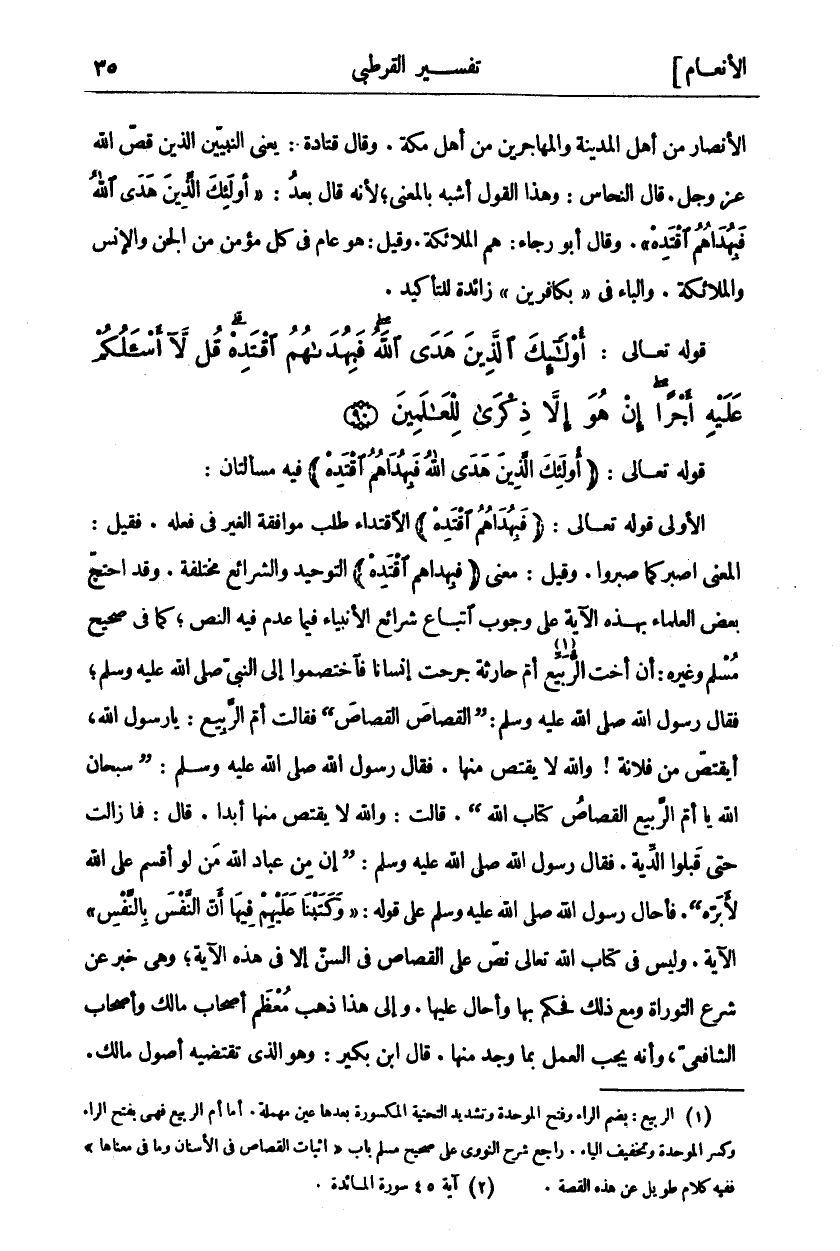 الأنعام] تفسير القرطبى ٣٥
الأنصار من أهل المدينة والمهاجرين من أهل مكة . وقال قتادة : يعنى النبيّين الذين قصّ الله
عز وجل . قال النحاس : وهذا القول أشبه بالمعنى؛ لأنه قال بعدُ : « أُولَئِكَ الَّذِينَ هَدَى ٱللهُ
فَبِهُدَاهُمُ ٱقْتَدِهْ» . وقال أبو رجاء : هم الملائكة . وقيل : هو عام فى كل مؤمن من الجن والإنس
والملائكة . والباء فى « بكافرين » زائدة للتأكيد .
قوله تعـالى : أُوْلَـٰٓئِكَ ٱلَّذِينَ هَدَى ٱللَّهُۖ فَبِهُدَىٰهُمُ ٱقْتَدِهْۗ قُل لَّآ أَسْـَٔلُكُمْ
عَلَيْهِ أَجْرًاۖ إِنْ هُوَ إِلَّا ذِكْرَىٰ لِلْعَـٰلَمِينَ ﴿٩٠﴾
قوله تعـالى : ﴿ أُولَئِكَ الَّذِينَ هَدَى اللهُ فَبِهُدَاهُمُ ٱقْتَدِهْ ﴾ فيه مسألتان :
الأولى قوله تعـالى : ﴿ فَبِهُدَاهُمُ ٱقْتَدِهْ ﴾ الاقتداء طلب موافقة الغير فى فعله . فقيل :
المعنى اصبر كما صبروا . وقيل : معنى ﴿ فبهداهم ٱقْتَدِهْ ﴾ التوحيد والشرائع مختلفة . وقد احتجّ
بعض العلماء بهـذه الآية على وجوب ٱتبـاع شرائع الأنبياء فيما عدم فيه النص ؛ كما فى صحيح
مُسْلم وغيره : أن أخت الرُّبَيِّع (١) أمّ حارثة جرحت إنسانا فٱختصموا إلى النبىّ صلى الله عليه وسلم ؛
فقال رسول الله صلى الله عليه وسلم : ”القصاصَ القصاصَ“ فقالت أمّ الرَّبِيع : يارسول الله ،
أيقتصّ من فلانة ! والله لا يقتص منها . فقال رسول الله صلى الله عليه وسـلم : ”سبحان
الله يا أمّ الرَّبيع القصاصُ كتاب الله “ . قالت : والله لا يقتص منها أبدا . قال : فما زالت
حتى قَبِلوا الدِّية . فقال رسول الله صلى الله عليه وسلم : ”إن مِن عباد الله مَن لو أقسم على الله
لأبَرّه“. فأحال رسول الله صلى الله عليه وسلم على قوله : « وَكَتَبْنَا عَلَيْهِمْ فِيهَا أَنَّ النَّفْسَ بِالنَّفْسِ»
الآية . وليس فى كتاب الله تعالى نصّ على القصاص فى السنّ إلا فى هذه الآية ؛ وهى خبر عن
شرع التوراة ومع ذلك فحكم بها وأحال عليها . وإلى هذا ذهب مُعْظَم أصحاب مالك وأصحاب
الشافعىّ ، وأنه يجب العمل بما وجد منها . قال ابن بكير : وهو الذى تقتضيه أصول مالك .
(١) الربيع : بضم الراء وفتح الموحدة وتشديد التحتية المكسورة بعدها عين مهملة . أما أم الربيع فهى بفتح الراء
وكسر الموحدة وتخفيف الياء . راجع شرح النووى على صحيح مسلم باب « اثبات القصاص فى الأسنان وما فى معناها »
ففيه كلام طويل عن هذه القصة . (٢) آية ٤٥ سورة المـائدة .